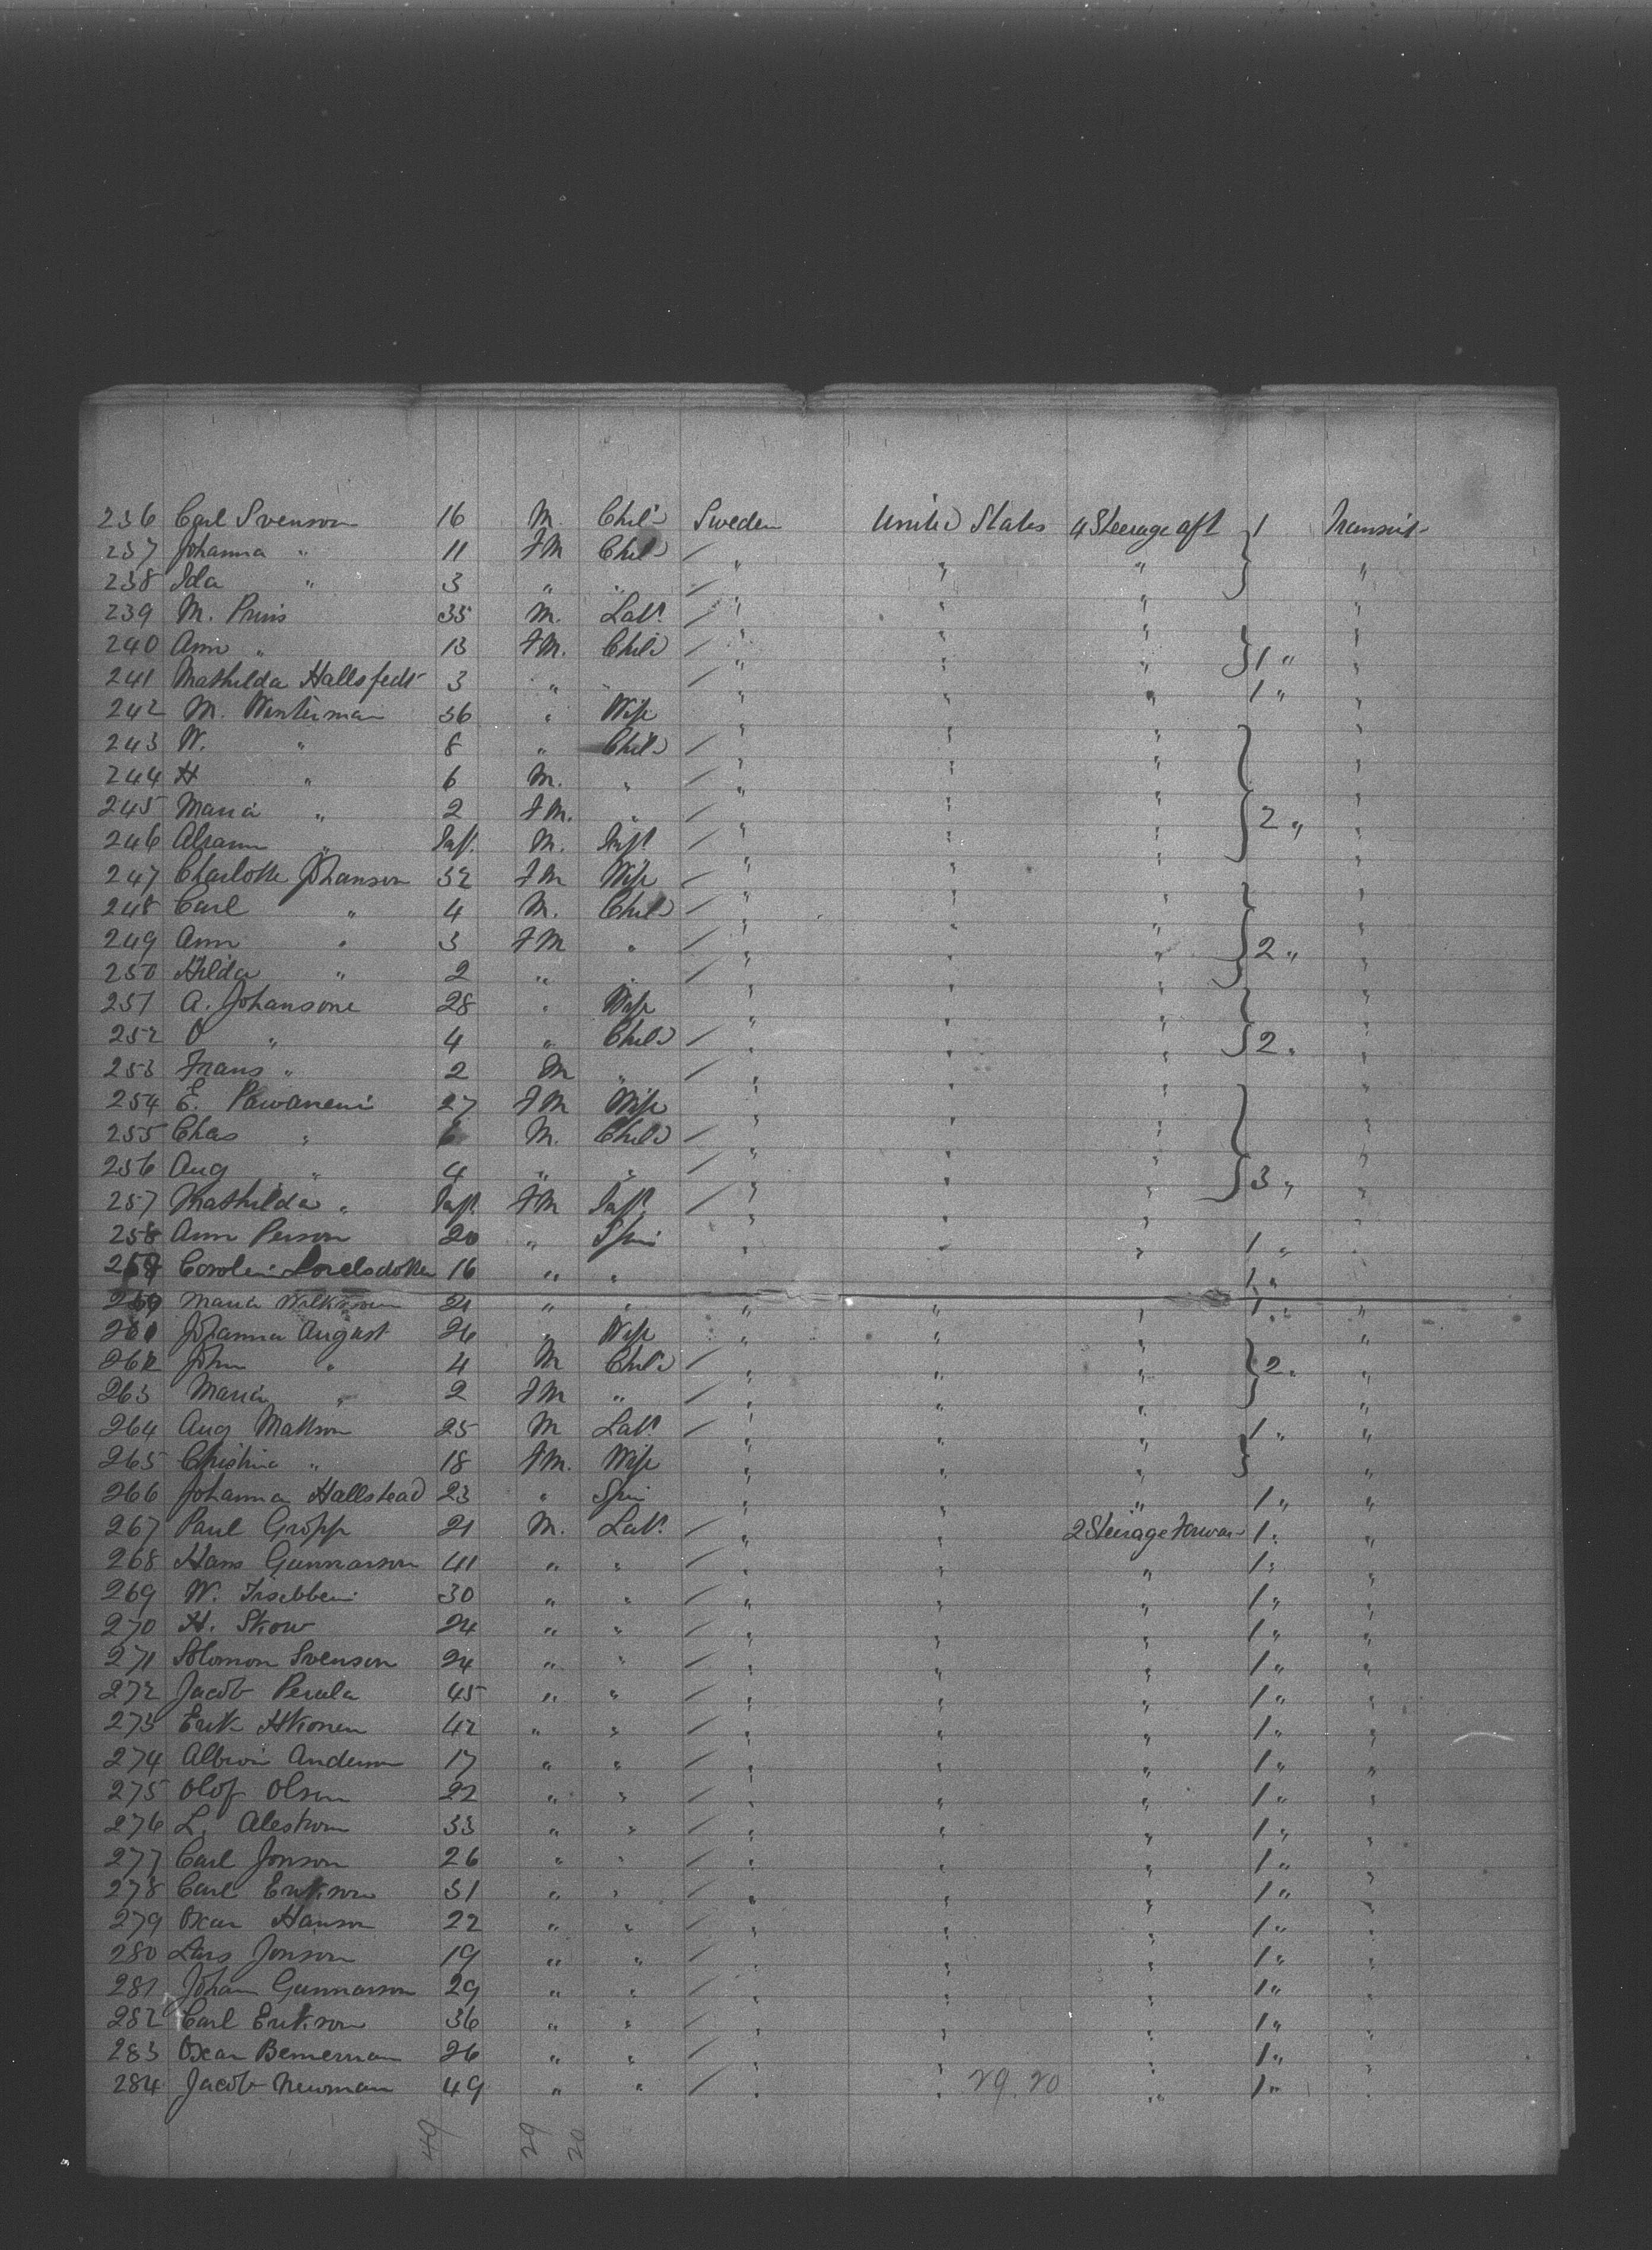 236 Carl Svenson 16 M. Child Sweden United States 4 Steerage aft 1 Transit
237 Johanna " 11 FM Child " " " "
238 Ida " 3 " " " " " "
239 M. Prins 35 M. Labr " " " "
240 Ann " 13 FM. Child " " " 1 " "
241 Mathilda Hallsfedt 3 " " " " 1 " "
242 M. Winterman 36 " Wife " " " "
243 W. " 8 " Child " " " "
244 H " 6 M. " " " " "
245 Maria " 2 FM. " " " " 2 " "
246 " Inf. M. Inft " " " "
247 Charlotte Johanson 32 FM Wife " " " "
248 Carl " 4 M. Child " " " "
249 Ann " 3 FM " " " " 2 " "
250 Hilda " 2 " " " " " "
251 A. Johansone 28 " Wife " " " "
252 O " 4 " Child " " " 2 " "
253 Frans " 2 M " " " " "
254 E. 27 FM Wife " " " "
255 Chas " 6 M. Child " " " "
256 Aug " 4 " " " " " 3 " "
257 Mathilda " Inft. FM Inft. " " " "
258 Ann Person 20 " Spin " " " 1 "
259 16 " " 1 "
Maria 21 " " " " " 1 " "
261 Johanna August 26 " Wife " " " "
262 John " 4 M Child " " " 2 " "
263 Maria " 2 FM " " " " "
264 Aug Mattson 25 M Labr " " " 1 " "
265 Christina " 18 FM. Wife " " " "
266 Johanna Hallstead 23 " Spin " " " 1 " "
267 Paul Gropp 21 M. Labr " " 2 Steerage Forwar 1 " "
268 Hans Gunnarson 41 " " " " " 1 " "
269 W. 30 " " " " " 1 " "
270 H. Skow 24 " " " " " 1 " "
271 Solomon Svenson 24 " " " " " 1 " "
272 Jacob Perala 45 " " " " " 1 " "
273 Erik 42 " " " " " 1 " "
274 Albin Anderson 17 " " " " " 1 " "
275 Olof Olson 22 " " " " " 1 " "
276 L. Alestrom 33 " " " " " 1 " "
277 Carl Jonson 26 " " " " " 1 " "
278 Carl Erikson 31 " " " " " 1 " "
279 Oscar Hanson 22 " " " " " 1 " "
280 Lars Jonson 19 " " " " " 1 " "
281 Johan Gunnarson 29 " " " " " 1 " "
282 Carl Erikson 36 " " " " " 1 " "
283 Oscar Bernerman 26 " " " " " 1 " "
284 Jacob Newman 49 " " " " 29.20 " 1 " "
49 29 20